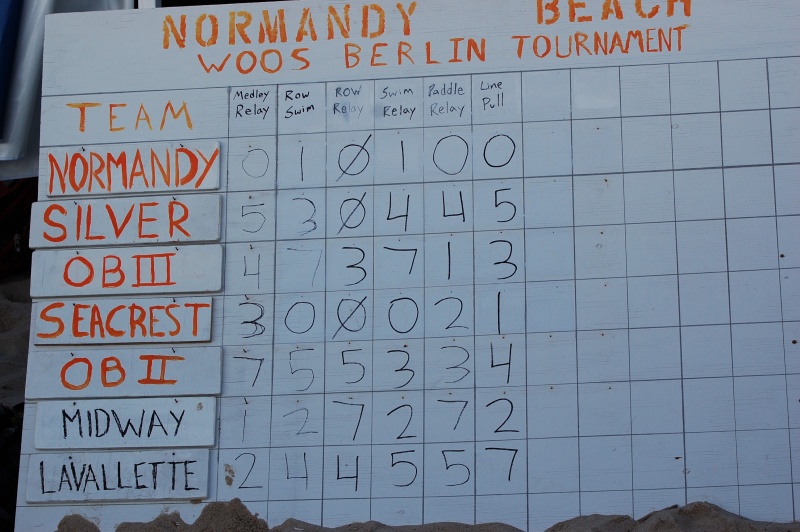 NORMANDY BEACH
WOOS BERLIN TOURNAMENT
TEAM Medley Relay Row Swim Row Relay Swim Relay Paddle Relay Line Pull
NORMANDY 0 1 Ø 1 0 0
SILVER 5 3 Ø 4 4 5
OB III 4 7 3 7 1 3
SEACREST 3 0 Ø 0 2 1
OB II 7 5 5 3 3 4
MIDWAY 1 2 7 2 7 2
LAVALLETTE 2 4 4 5 5 7